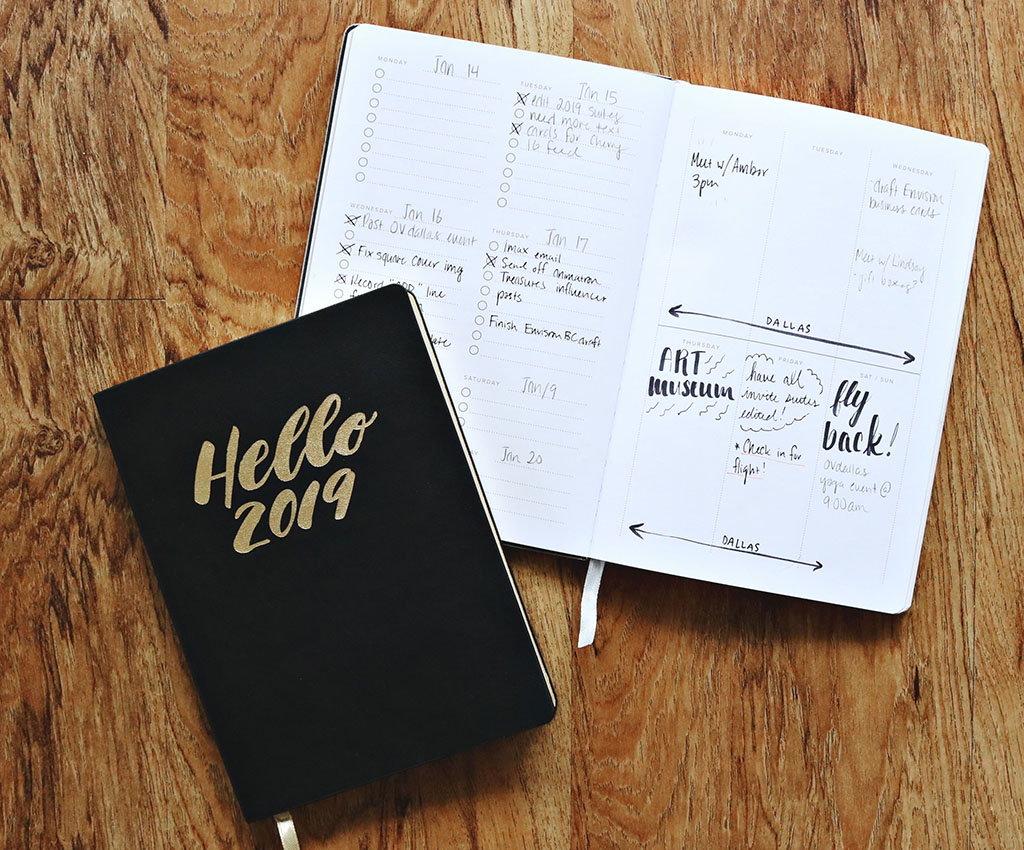 Hello
2019
MONDAY
Jan 14
TUESDAY
Jan 15
edit 2019 suites
need more text
cards for cherry
lb feed
WEDNESDAY
Jan 16
Post OVdallas event
Fix square cover img
Record line
THURSDAY
Jan 17
Imax email
Send off animation
Treasures influencer
posts
Finish Envision BC draft
SATURDAY
Jan 19
Jan 20
MONDAY
Meet w/ Amber
3pm
TUESDAY
WEDNESDAY
draft Envision
business cards
Meet w/ Lindsay
DALLAS
THURSDAY
ART
museum
FRIDAY
have all
invite suites
edited!
* Check in for
flight!
SAT / SUN
fly
back!
OVdallas
yoga event @
9:00am
DALLAS